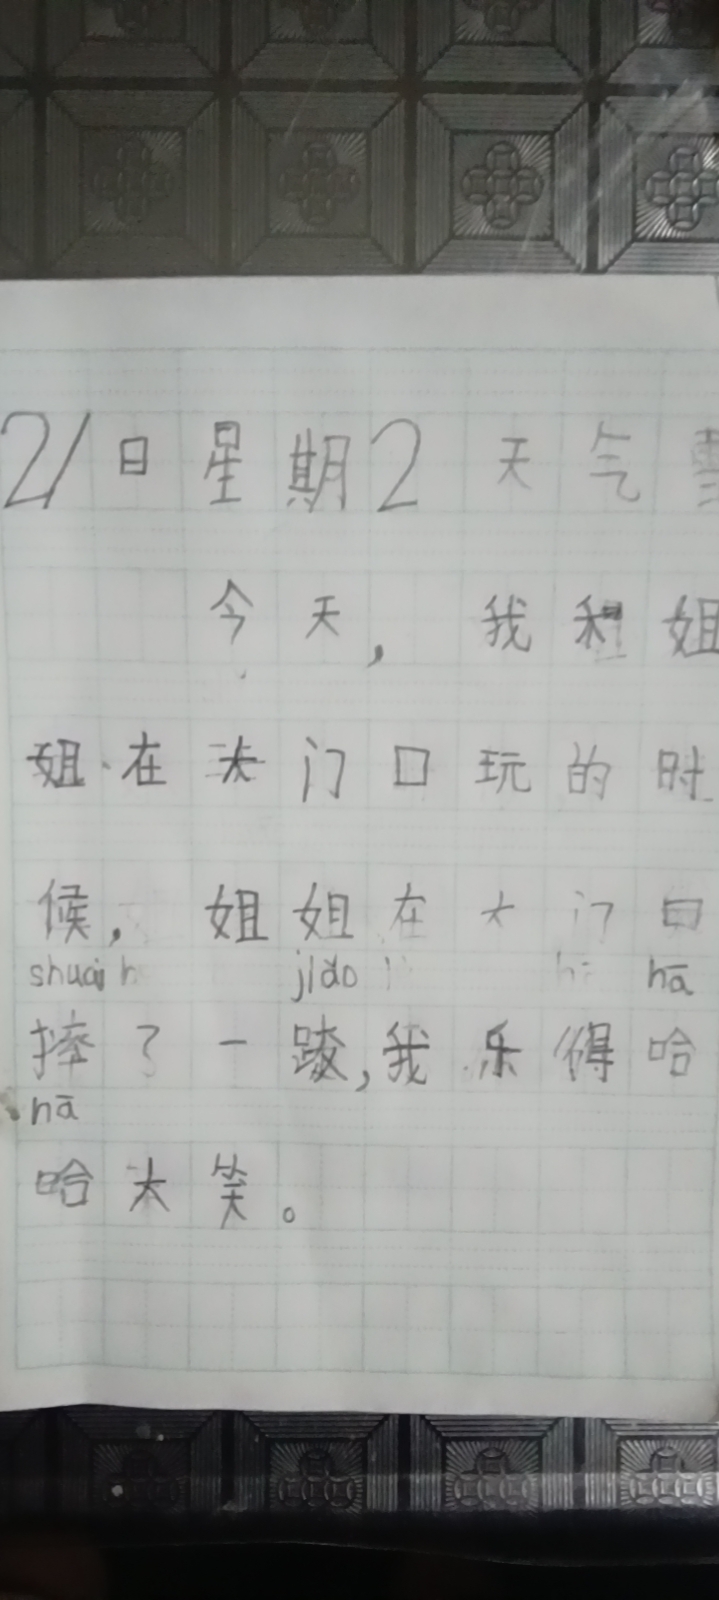 21日星期2 天气雪
今天，我和姐
姐在大门口玩的时
候，姐姐在大门口
shuāi jiāo hā
摔了一跤，我乐得哈
hā
哈大笑。